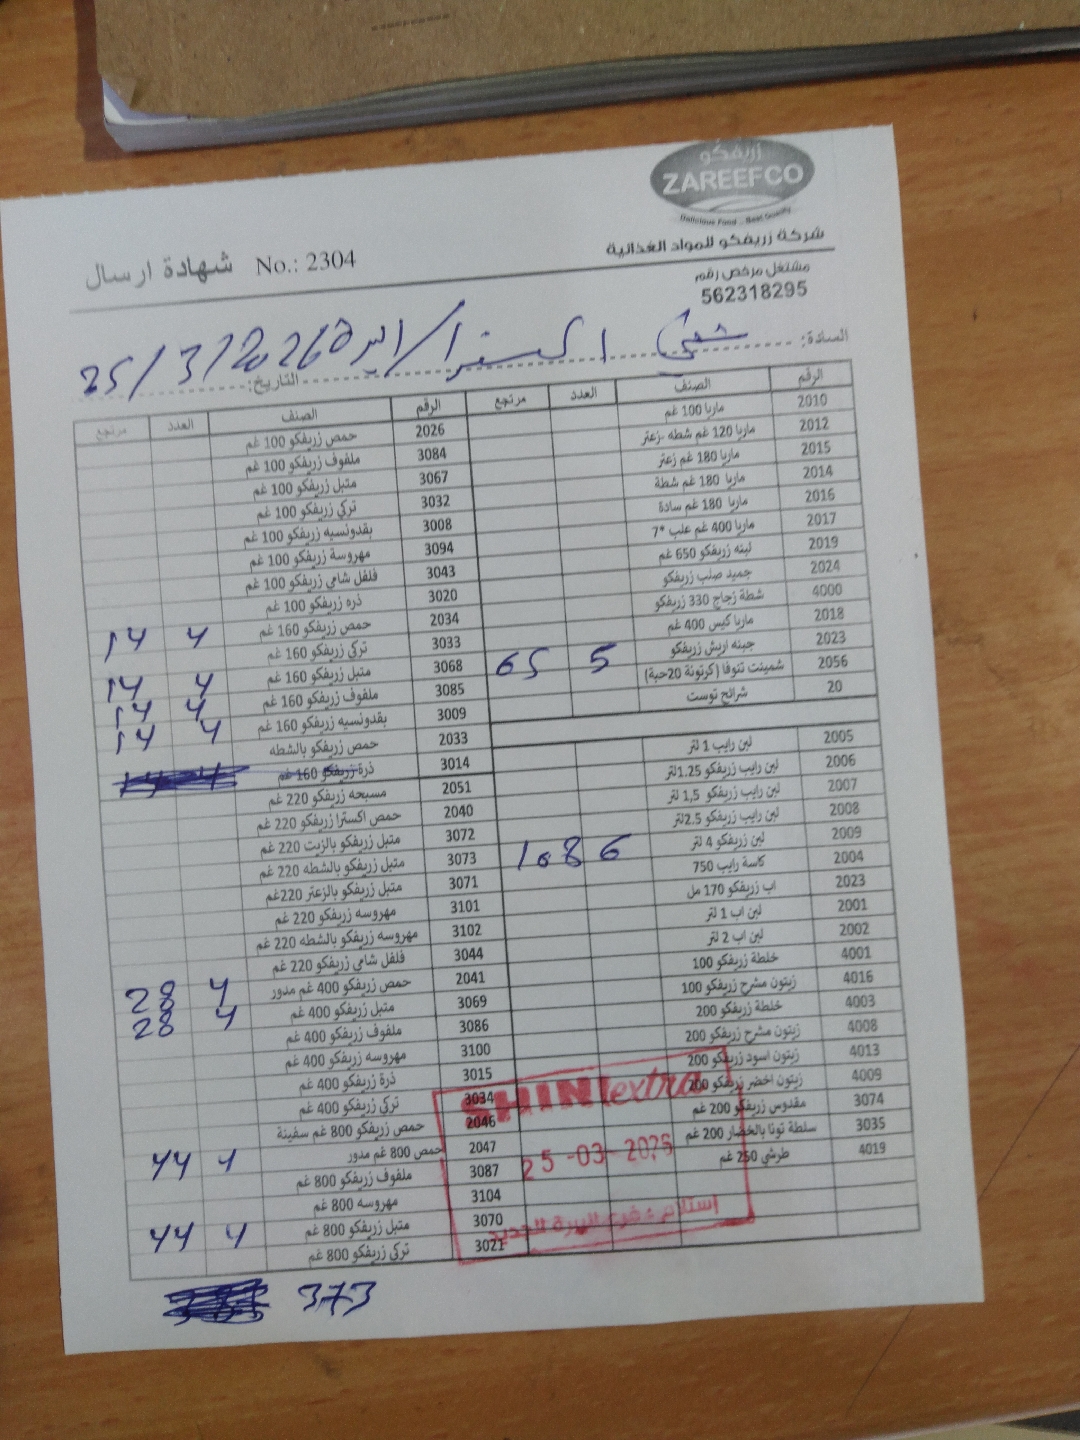 زريفكو
ZAREEFCO
Delicious Food .. Best Quality
شركة زريفكو للمواد الغذائية
شهادة ارسال No.: 2304
مشتغل مرخص رقم
562318295
السادة:
التاريخ: 25/3/2026
الرقم الصنف العدد مرتجع الرقم الصنف العدد مرتجع
2010 ماريا 100 غم 2026 حمص زريفكو 100 غم
2012 ماريا 120 غم شطه -زعتر 3084 ملفوف زريفكو 100 غم
2015 ماريا 180 غم زعتر 3067 متبل زريفكو 100 غم
2014 ماريا 180 غم شطة 3032 تركي زريفكو 100 غم
2016 ماريا 180 غم سادة 3008 بقدونسيه زريفكو 100 غم
2017 ماريا 400 غم علب *7 3094 مهروسة زريفكو 100 غم
2019 لبنه زريفكو 650 غم 3043 فلفل شامي زريفكو 100 غم
2024 جميد صلب زريفكو 3020 ذره زريفكو 100 غم
4000 شطة زجاج 330 زريفكو 2034 حمص زريفكو 160 غم 4 14
2018 ماريا كيس 400 غم 3033 تركي زريفكو 160 غم
2023 جبنه اريش زريفكو 5 65 3068 متبل زريفكو 160 غم 4 14
2056 شمينت تنوفا (كرتونة 20حبة) 3085 ملفوف زريفكو 160 غم 4 14
20 شرائح توست 3009 بقدونسيه زريفكو 160 غم 4 14
2033 حمص زريفكو بالشطه
2005 لبن رايب 1 لتر 3014 ذرة زريفكو 160 غم
2006 لبن رايب زريفكو 1.25لتر 2051 مسبحه زريفكو 220 غم
2007 لبن رايب زريفكو 1,5 لتر 2040 حمص اكسترا زريفكو 220 غم
2008 لبن رايب زريفكو 2.5لتر 3072 متبل زريفكو بالزيت 220 غم
2009 لبن زريفكو 4 لتر 6 108 3073 متبل زريفكو بالشطه 220 غم
2004 كاسة رايب 750 3071 متبل زريفكو بالزعتر 220غم
2023 اب زريفكو 170 مل 3101 مهروسه زريفكو 220 غم
2001 لبن اب 1 لتر 3102 مهروسه زريفكو بالشطه 220 غم
2002 لبن اب 2 لتر 3044 فلفل شامي زريفكو 220 غم
4001 خلطة زريفكو 100 2041 حمص زريفكو 400 غم مدور 4 28
4016 زيتون مشرح زريفكو 100 3069 متبل زريفكو 400 غم 4 28
4003 خلطة زريفكو 200 3086 ملفوف زريفكو 400 غم
4008 زيتون مشرح زريفكو 200 3100 مهروسه زريفكو 400 غم
4013 زيتون اسود زريفكو 200 3015 ذرة زريفكو 400 غم
4009 زيتون اخضر زريفكو 200 3034 تركي زريفكو 400 غم
3074 مقدوس زريفكو 200 غم 2046 حمص زريفكو 800 غم سفينة
3035 سلطة تونا بالخضار 200 غم 2047 حمص 800 غم مدور 4 44
4019 طرشي 250 غم 3087 ملفوف زريفكو 800 غم
3104 مهروسه 800 غم
3070 متبل زريفكو 800 غم 4 44
3021 تركي زريفكو 800 غم
SHINI extra
25-03-2026
373